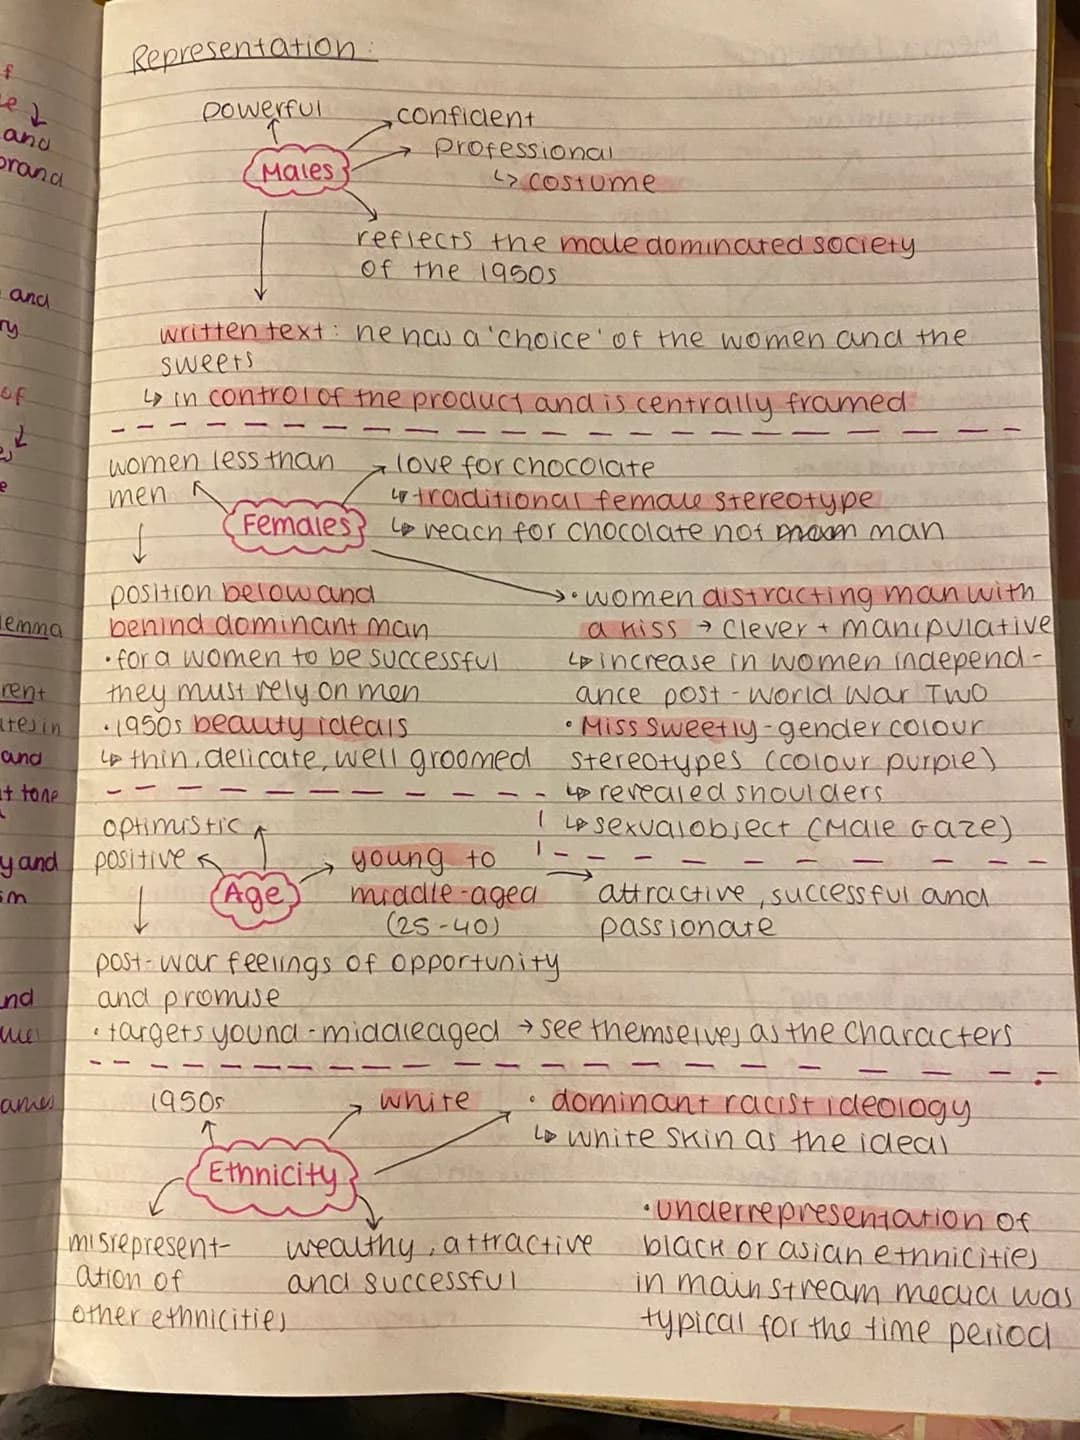 Representation:
powerful
confident
Males
professional
↳ costume
reflects the male dominated society
of the 1950s
written text: he has a 'choice' of the women and the
sweets
↳ in control of the product and is centrally framed
women less than
men
love for chocolate
↳ traditional female stereotype
Females
↳ reach for chocolate not man
position below and
behind dominant man
• for a women to be successful
they must rely on men
• 1950s beauty ideals
↳ thin, delicate, well groomed
• women distracting man with
a kiss → clever + manipulative
↳ increase in women independ-
ance post-world war Two
• Miss Sweetly - gender colour
stereotypes (colour purple)
↳ revealed shoulders
↳ sexual object (Male Gaze)
optimistic
positive
Age
young to
middle-aged
(25-40)
attractive, successful and
passionate
post-war feelings of opportunity
and promise
• targets yound-middleaged → see themselves as the characters
1950s
white
• dominant racist ideology
↳ white skin as the ideal
Ethnicity
misrepresent-
ation of
other ethnicities
wealthy, attractive
and successful
• underrepresentation of
black or asian ethnicities
in mainstream media was
typical for the time period
f
and
brand
and
ry
of
e
lemma
rent
ates in
and
t tone
y and
sm
nd
ame